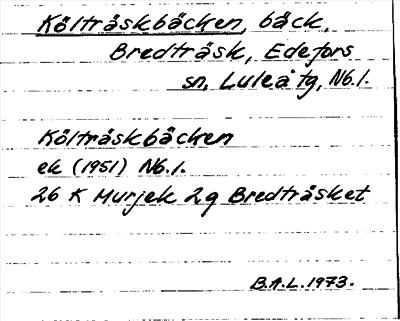 Költräskbäcken, bäck,
Bredträsk, Edefors
sn, Luleå tg, Nb.l.
Költräskbäcken
ek (1951) Nb.l.
26 K Murjek 2g Bredträsket
B.A.L. 1973.